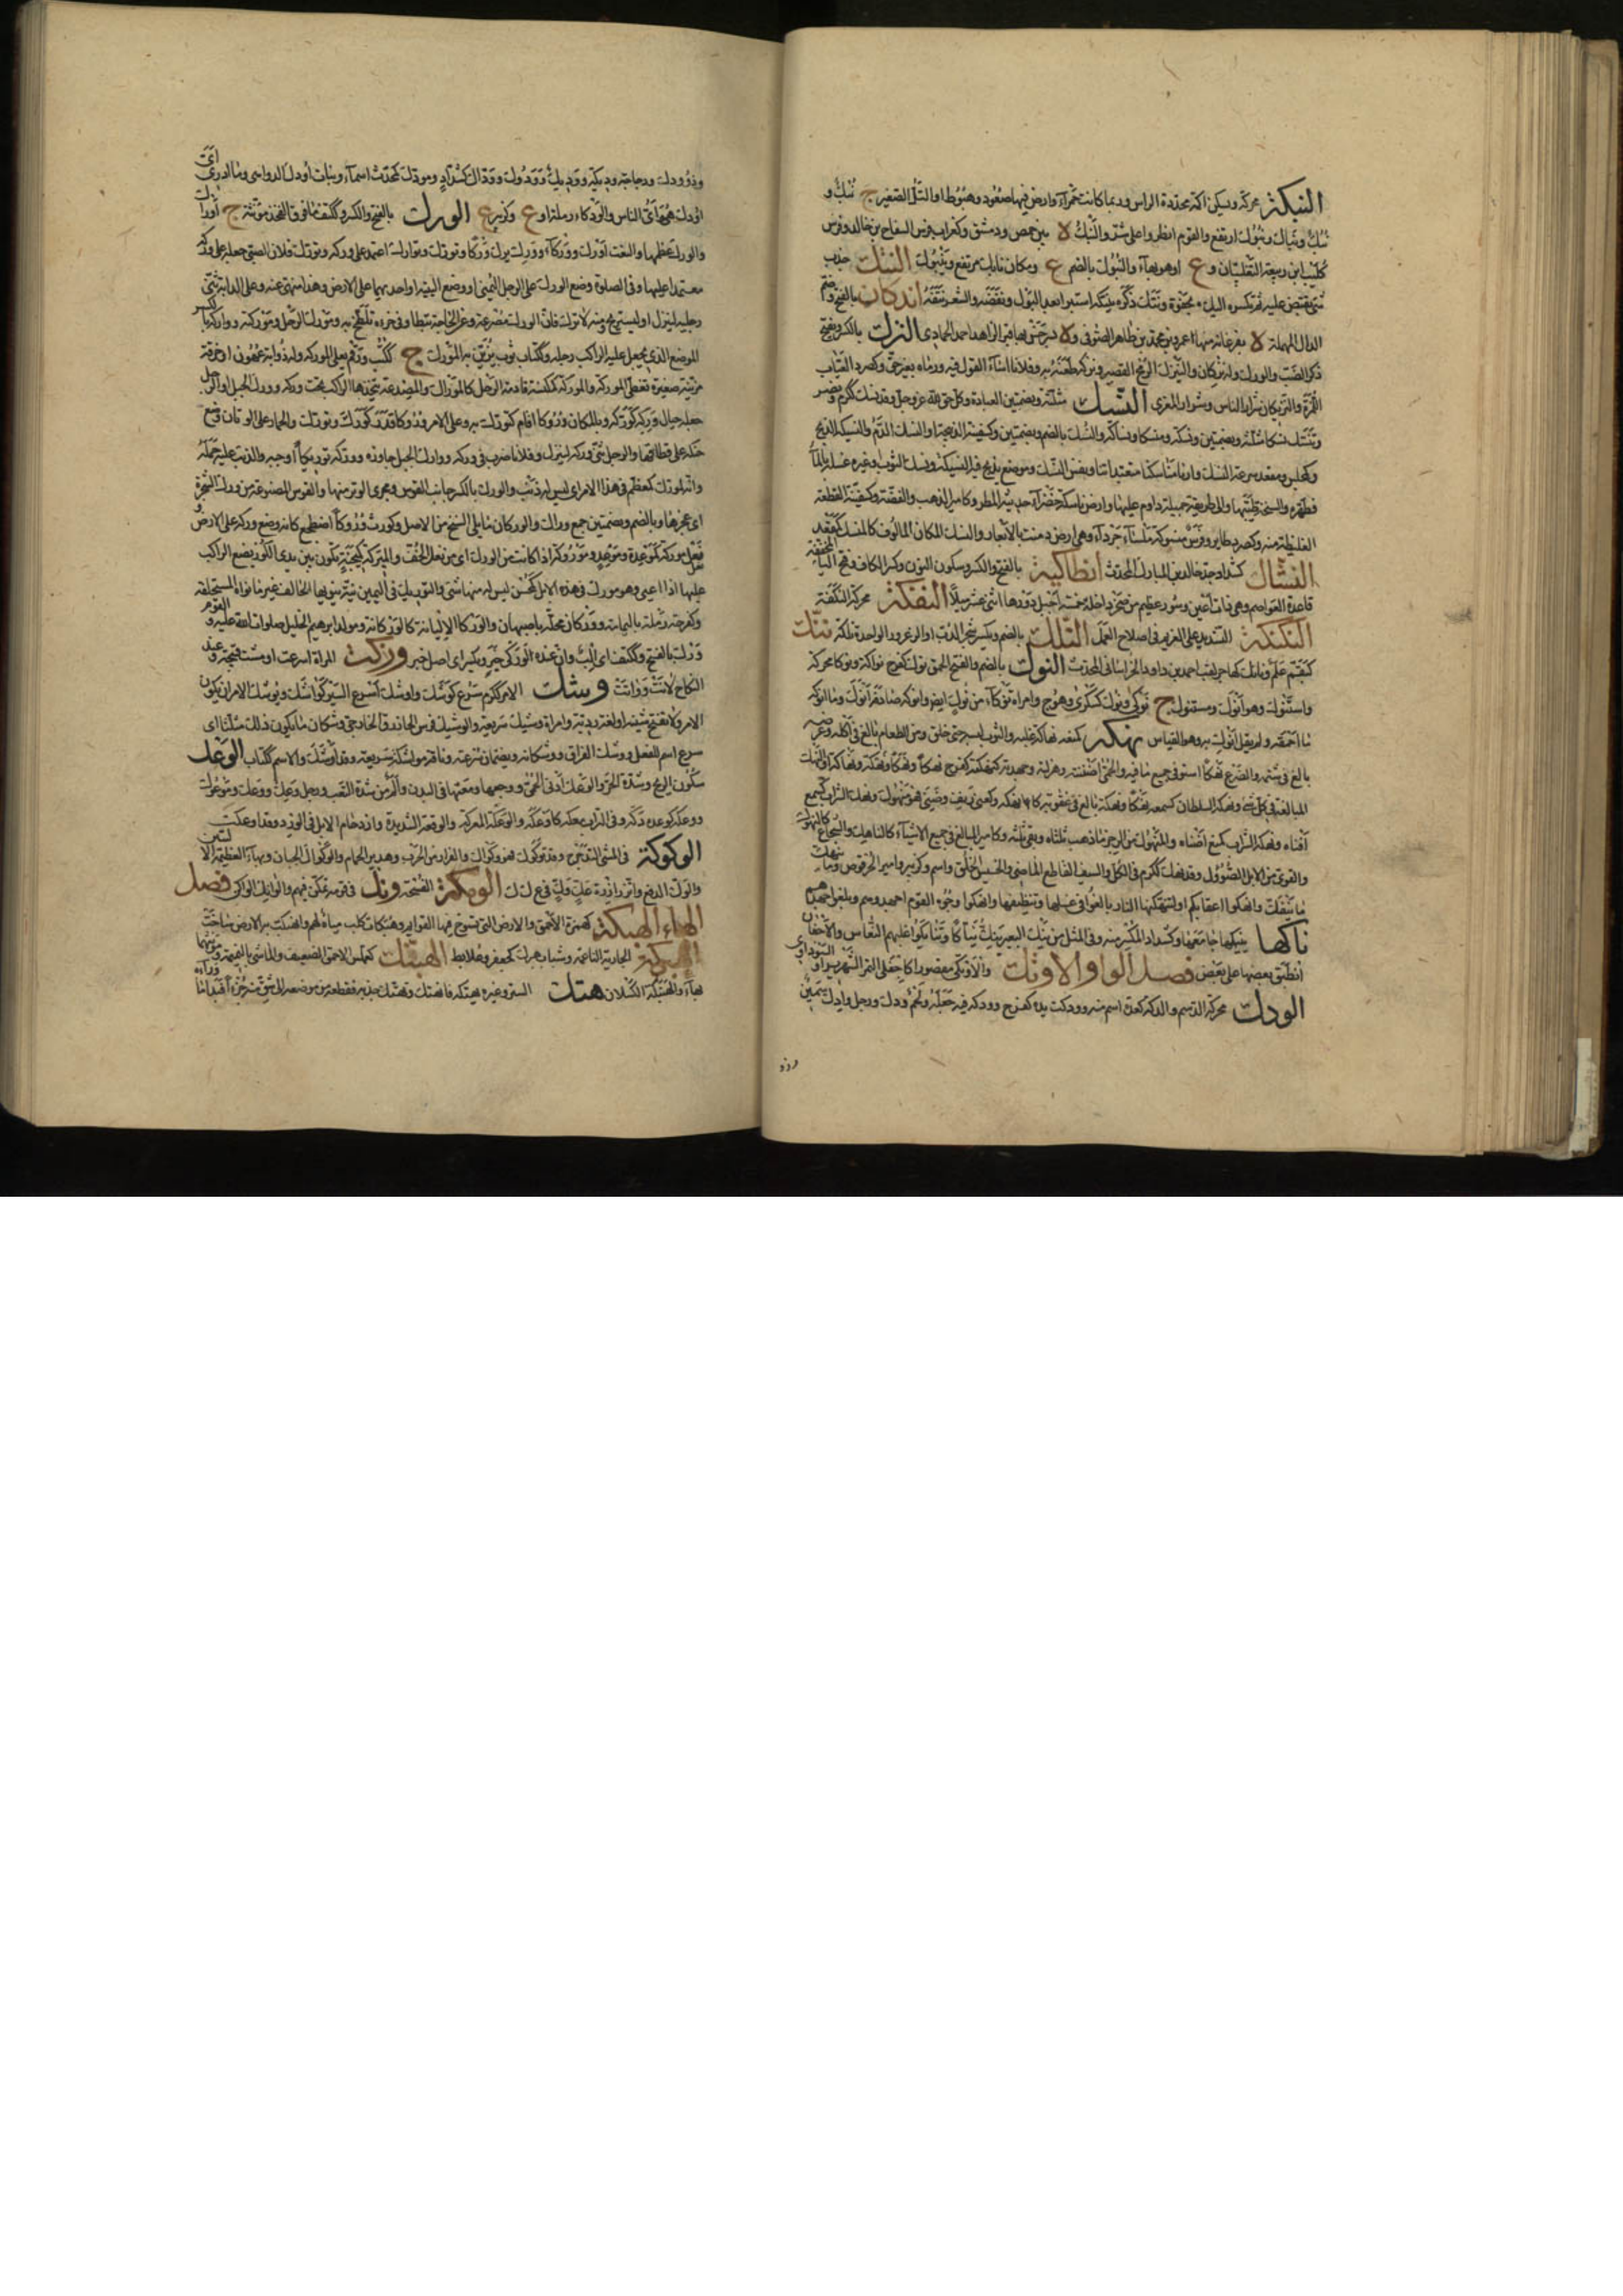 النبكة محركة وتسكن اكمة محددة الراس وربما كانت حمراء وارض فيها صعود وهبوط او التل الصغير ج نبك و
نبك ونباك ونبوك ارتفع والقوم
كليب ابن ربيعة التغلبيان و ع او هو بهاء والنبوك بالضم ع ومكان نابك مرتفع وينبوك النتك جذب
شئ تقبض عليه ثم تكسره اليك بجفوة ونتك ذكره ينتكه استبرا بعد البول ونفضه والشعر نتفه اندكان بالفتح وضم
الدال المهملة ة بفرغانة منها عمر بن محمد بن طاهر الصوفى و ة بسرخس بها قبر الزاهد احمد الحمادى النزك بالكسر ويفتح
ذكر الضب والورل وله نزكان والنيزك الرمح القصير ونزكه طعنه به وفلانا اساء القول فيه ورماه بغير حق وكصرد العياب
النسك مثلثة وبضمتين العبادة وكل حق لله عز وجل وقد نسك ككرم ونصر
وتنسك نسكا مثلثة وبضمتين ونسكة ومنسكا ونساكة والنسك بالضم وبضمتين وكسفينة الذبيحة او النسك الدم والنسيكة الذبح
وكمجلس ومقعد شرعة النسك وارنا مناسكنا متعبداتنا ونفس النسك وموضع تذبح فيه النسيكة ونسك الثوب وغيره غسله بالماء
فطهره والسبخة طيبها والى طريقة جميلة داوم عليها وارض ناسكة خضراء حديثة المطر وكامير الذهب والفضة وكسفينة القطعة
الغليظة منه وكصرد طاير وفرس منسوكة ملساء جرداء وهى ارض دمنت بالابعار والنسك المكان المالوف كالمنسك كمقعد
النشاك كشداد جد خالد بن المبارك المحدث انطاكية بالفتح والكسر وسكون النون وكسر الكاف وفتح الياء المخففة
قاعدة العواصم وهى ذات اعين وسور عظيم من صخر داخله خمسة اجبل دورها اثنى عشر ميلا النفكة محركة النكفة
النكنكة التشديد على الغريم فى اصلاح العمل النلك بالضم ويكسر شجر الدب او الزعرور الواحدة نلكة
النوك بالضم والفتح الحمق نوك كفرح نواكة ونوكا محركة
واستنوك وهو انوك ومستنوك ج نوكى ونوك كسكرى وهوج وامراة نوكاء من نوك ايضا وانوكه صادفه انوك وما انوكه
ما احمقه ولم يقل انوك به وهو القياس نهكه كمنعه نهاكة غلبه والثوب لبسه حتى خلق ومن الطعام بالغ فى اكله وعرضه
بالغ فى شتمه والضرع نهكا استوفى جميع ما فيه والحمى اضنته وهزلته وجهدته كنهكته كفرح نهكا ونهكا ونهكة ونهاكة او النهك
المبالغة فى كل شئ ونهكه السلطان كسمعه نهكا ونهكة بالغ فى عقوبته كانهكه وكعنى دنف وضنى فهو منهوك ونهك الشراب كسمع
افناه ونهكه الشراب كمنع افناه والمنهوك من الرجز ما ذهب ثلثاه وبقى ثلثه وكامير المبالغ فى جميع الاشياء كالناهك والشجاع كالنهوك
والقوى من الابل الصؤول وقد نهك ككرم فى الكل والسيف القاطع الماضى والحسن الخلق واسم وكزبير وامير الحرقوص وما ينهك
ما ينفك وانهكوا اعقابكم او لتنهكنها النار بالغوا فى غسلها وتنظيفها وانهكوا وجوه القوم اجهدوهم وبلغوا جهدهم
ناكها ينيكها جامعها وكشداد المكثر منه وفى المثل من ينك البعير ينك نياكا وتنايكوا غلبهم النعاس والاجفان
انطبق بعضها على بعض فصل الواو الاوتك والاوتكى مقصورا كاجفلى التمر الشهريز او السوادى
الودك محركة الدسم والدكة كعدة اسم منه وودكت يده كفرح وودكه فيه جعله ولحم ودك ورجل وادك سمين
وذو
وذو ودك ودجاجة وديكة ووديك وودوك ووداك كشداد ومودك كمحدث اسماء وبنات اودك الدواهى وما ادرى اى
اودك هو اى الناس والودكاء رملة او ع وكزبير ع الورك بالفتح والكسر وككتف ما فوق الفخذ مؤنثة ج اوراك
والورك عظمها والنعت اورك ووركاء وورك يرك وركا وتورك وتوارك اعتمد على وركه وتورك فلان الصبى جعله على وركه
معتمدا عليها وفى الصلوة وضع الورك على الرجل اليمنى او وضع اليتيه او احديهما على الارض وهذا منهى عنه وعلى الدابة ثنى
رجليه لينزل او ليستريح ومنه لا ترك فان الورك مصرعة وعن الحاجة تبطا وفى خرئه تلطخ به ومورك الرحل وموركته ووراكه بالكسر
الموضع الذى يجعل عليه الراكب رجله وككتاب ثوب يزين به المورك ج ككتب ورقم يعلى الموركة وله ذؤابة عهون او خرقة
مزينة صغيرة تغطى الموركة والموركة كمكنسة قادمة الرحل كالموراك والمصدغة يتخذها الراكب تحت وركه وورك الحبل او الرحل
جعله حيال وركه كوركه وبالمكان وروكا اقام كتورك به وعلى الامر وروكا قدر كورك وتورك والحمار على الاتان وضع
حنكه على قطاتها والرجل ثنى وركه لينزل وفلانا ضرب فى وركه ووارك الجبل جاوزه ووركه توريكا اوجبه والذنب عليه حمله
وانه لمورك كمعظم فى هذا الامر اى ليس له ذنب والورك بالكسر جانب القوس ومجرى الوتر منها والقوس المصنوعة من ورك الشجرة
اى عجزها وبالضم وبضمتين جمع وراك والوركان ما يلى السنخ من الاصل وكورث وروكا اضطجع كانه وضع وركه على الارض
ونعل موركة كموعدة وموعد وموروكة اذا كانت من الورك اى من نعل الخف والميركة كيجنة تكون بين يدى الكور يضع الراكب
عليها اذا اعيى وهو مورك فى هذه الابل كمحسن ليس له منها شئ والتوريك فى اليمين نية ينويها الحالف غير ما نواه المستحلف
وكفرحة رملة باليمامة ووركان محلة باصبهان والوركاء الاليانة كالوركانة ومولد ابرهيم الخليل صلوات الله عليه والقوم
المراة اسرعت او مشت قبيحة وعند
النكاح لانت وواتت وشك الامر ككرم سرع كوشك واوشك اسرع السير كواشك ويوشك الامر ان يكون
سرع اسم للفعل ووشك الفراق ووشكانه ويضمان سرعته وناقة مواشكة سريعة وقد اوشكت والاسم ككتاب الوعك
سكون الريح وشدة الحر والوعك اذى الحمى ووجعها ومغثها فى البدن والم من شدة التعب ورجل وعك ووعك وموعوك
ووعكه كوعده دكه وفى التراب معكه كاوعكه والوعكة المعركة والوقعة الشديدة وازدحام الابل فى الورد وقد اوعكت
الوكوكة فى المشى التدحرج وقد توكوك فهو وكواك والفرار من الحرب وهدير الحمام والوكواك الجبان وبهاء العظيمة الاليتين
والوك الدفع واتزر ازرة عك وك فى ع ك ك الومكة الفسحة ونك فى قومه تمكن فيهم والوانك الواكن فصل
الهاء الهبكة كهمزة الاحمق والارض التى تسوخ فيها القوائم وهبكات كلب مياه لهم وانهبكت به الارض ساخت
الهبركة الجارية الناعمة وشباب هبرك كجعفر وعلابط الهبنك كعملس الاحمق الضعيف والماشى بالنميمة وهى
بهاء والهبنكة الكسلان هتك الستر وغيره يهتكه فانهتك وتهتك جذبه فقطعه من موضعه او شق منه جزءا فبدا ما وراءه